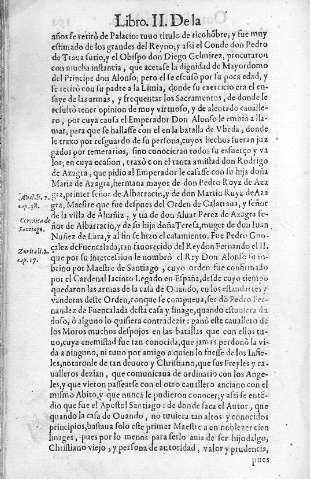 Libro. II. De la
años se retirò de Palacio: tuuo titulo de ricohõbre, y fue muy
estimado de los grandes del Reyno, y assi el Conde don Pedro
de Traua su tio, y el Obispo don Diego Gelmirez, procuraron
con mucha instancia, que acetasse la dignidad de Mayordomo
del Principe don Alonso; pero el se escusò por su poca edad, y
se retirò con su padre a la Limia, donde su exercicio era el en-
saye de las armas, y frequentar los Sacramentos, de donde le
resultò tener opinion de muy virtuoso, y de alentado cauallero
, por cuya causa el Emperador Don Alonso le embiò a lla-
mar, para que se hallasse con el en la batalla de Vbeda, donde
le traxo por resguardo de su persona, cuyos hechos fueran juz
gados por temerarios, sino conocieran todos su esfuerço y va
lor, en cuya ocasion, traxò con el tanta amistad don Rodrigo
de Azagra, que pidio al Emperador le casasse con su hija doña
Maria de Azagra, hermana mayor de don Pedro Ruyz de Aza
gra, primer señor de Albarracin, y de don Martin Ruyz de Aza
gra, Maestre que fue despues del Orden de Calatraua, y señor
de la villa de Alcaiziz, y tia de don Aluar Perez de Azagra se-
ñor de Albarrazin, y de su hija doña Teresa, muger de don Iuan
Nuñez de Lara, y al fin se hizo el casamiento. Fue Pedro Gonç
alez de Fuencalada, tan fauorecido del Rey don Fernando el II.
que por su intercession le nombrò el Rey Don Alonso su so-
brino por Maestre de Santiago, cuyo orden fue confirmado
por el Cardenal Iacinto Legado en España, desde cuyo tiempo
quedaron las armas de la casa de Ouando, en los estandartes y
vanderas deste Orden, con que se comprueua, ser dõ Pedro Fer-
nandez de Fuencalada desta casa y linage, quando estuuiera du
doso, ò alguno lo quisiera contradezir: ganò este cauallero de
los Moros muchos despojos en las batallas que con ellos tu-
uo, cuya enemistad fue tan conocida, que jamas perdonò la vi-
da a ninguno, ni tuuo por amigo a quien lo fuesse de los Infie-
les, notaronle de tan deuoto y Christiano, que sus Freyles y ca-
ualleros dezian, que comunicaua de ordinario con los Ange-
les, y que vieron passearse con el otro cauallero anciano con el
mismo Abito, y que nunca le pudieron conocer; y assi se enté-
dio que fue el Apostol Santiago: de donde saca el Autor, que
quando la casa de Ouando, no tuuiera tan altos y conocidos
principios, bastaua solo este primer Maestre a ennoblezer cien
linages, pues por lo menos para serlo auia de ser hijodalgo,
Christiano viejo, y persona de autoridad, valor y prudencia,
pues
cap. 38.
Coronica de
Santiago.
Zurita li. 2.
cap. 17.